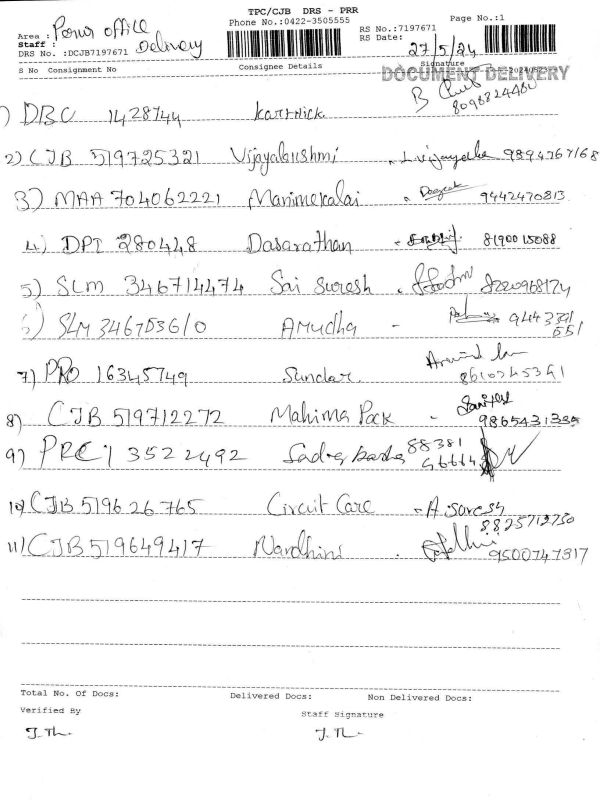 TPC/CJB DRS - PRR
Phone No.:0422-3505555
Page No.:1
Area : Porur office
Staff : Delivery
DRS No. :DCJB7197671
RS No.:7197671
RS Date: 27/5/24
S No Consignment No Consignee Details Signature
DOCUMENT DELIVERY
1) DBC 1428744 Karthick 8098824480
2) CJB 519725321 Vijayalakshmi 9894767168
3) MAA 704062221 Manimekalai 9442470813
4) DPI 280448 Dasarathan 8190015088
5) SLM 346714474 Sai Suresh 8220968174
6) SLM 346753610 Amudha -
7) PRO 16345749 Sundar 8610245341
8) CJB 519712272 Mahima Pack - 9865431335
9) PRC 13522492 88381
10) CJB 519626765 Circuit Care - A.Suresh
8825712730
11) CJB 519649417 Nardhini 9500747317
Total No. Of Docs: Delivered Docs: Non Delivered Docs:
Verified By Staff Signature